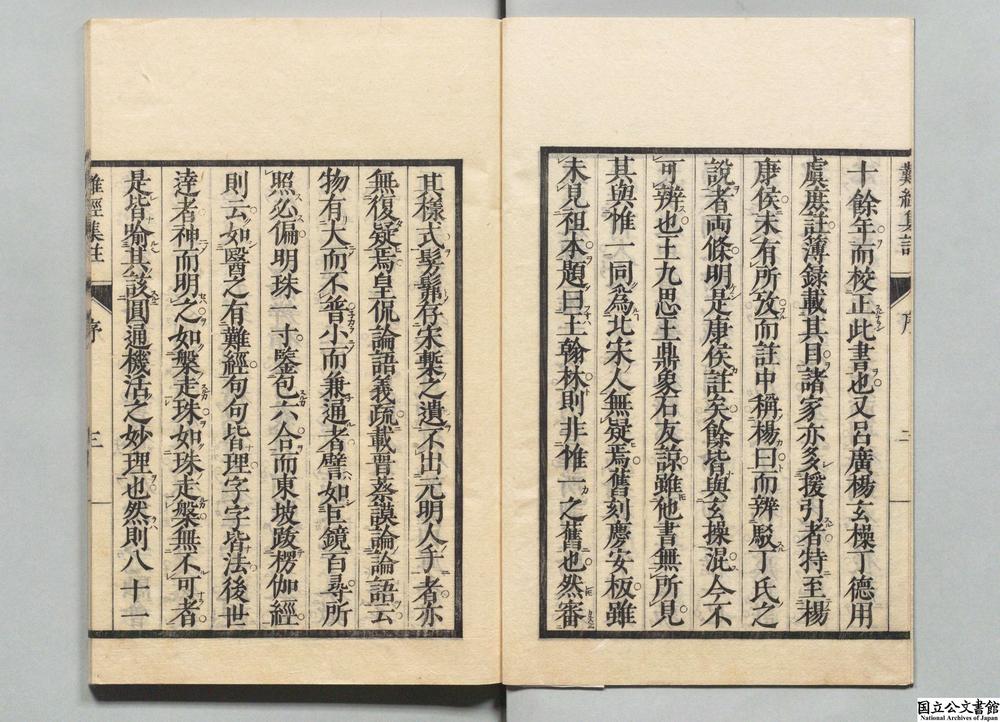 難經集註 序 二
十餘年而校正此書也又呂廣楊玄操丁德用
虞庶註簿錄載其目諸家亦多援引者特至楊
康侯未有所攷而註中稱楊曰而辨駁丁氏之
說者兩條明是康侯註矣餘皆與玄操混今不
可辨也王九思王鼎象石友諒雖他書無所見
其與惟一同為北宋人無疑焉舊刻慶安板雖
未見祖本題曰王翰林則非惟一之舊也然審
其樣式髣髴存宋槧之遺不出元明人手者亦
無復疑焉皇侃論語義疏載晋蔡謨論論語云
物有大而不普小而兼通者譬如巨鏡百尋所
照必偏明珠一寸鑒包六合而東坡跋楞伽經
則云如醫之有難經句句皆理字字皆法後世
達者神而明之如槃走珠如珠走槃無不可者
是皆喻其該圓通機活之妙理也然則八十一
難經集註 序 三
国立公文書館
National Archives of Japan